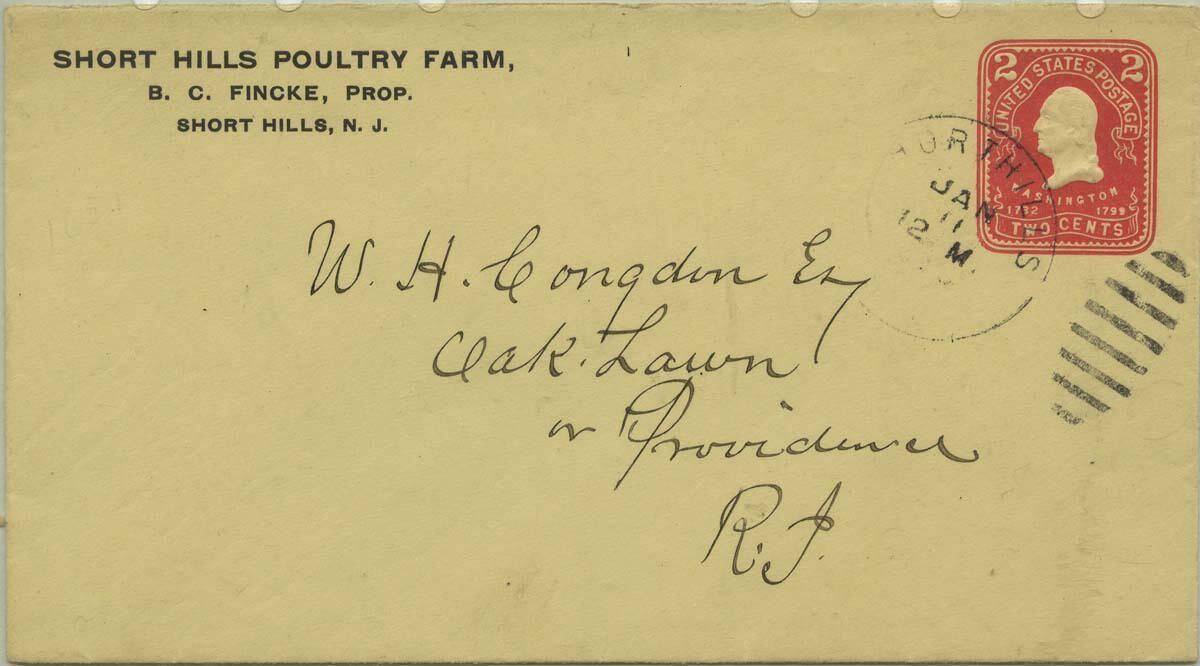 SHORT HILLS POULTRY FARM,
B. C. FINCKE, PROP.
SHORT HILLS, N. J.
2 2
UNITED STATES POSTAGE
WASHINGTON
1732 1799
TWO CENTS
JAN
11
12 M.
W. H. Congdon Esq
Oak Lawn
or Providence
R.I.